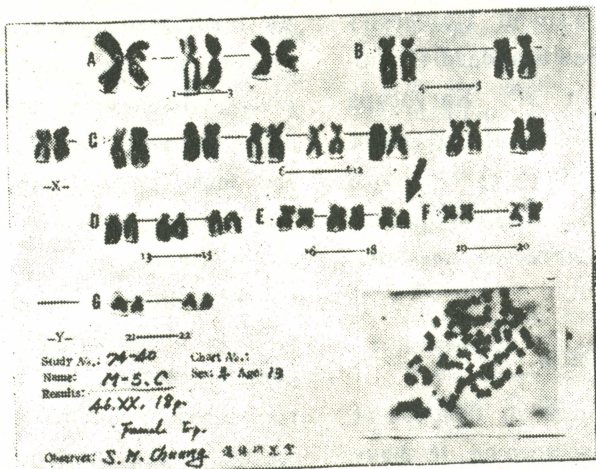 A B
1 3 4 5
C
-X- 6 12
D E F
13 15 16 18 19 20
G
-Y- 21 22
Study No.: 74-40 Chart No.:
Name: M-S.C Sex: ♀ Age: 13
Results:
46.XX. 18p-
Female Ty.
Observer: S. M. Chuang